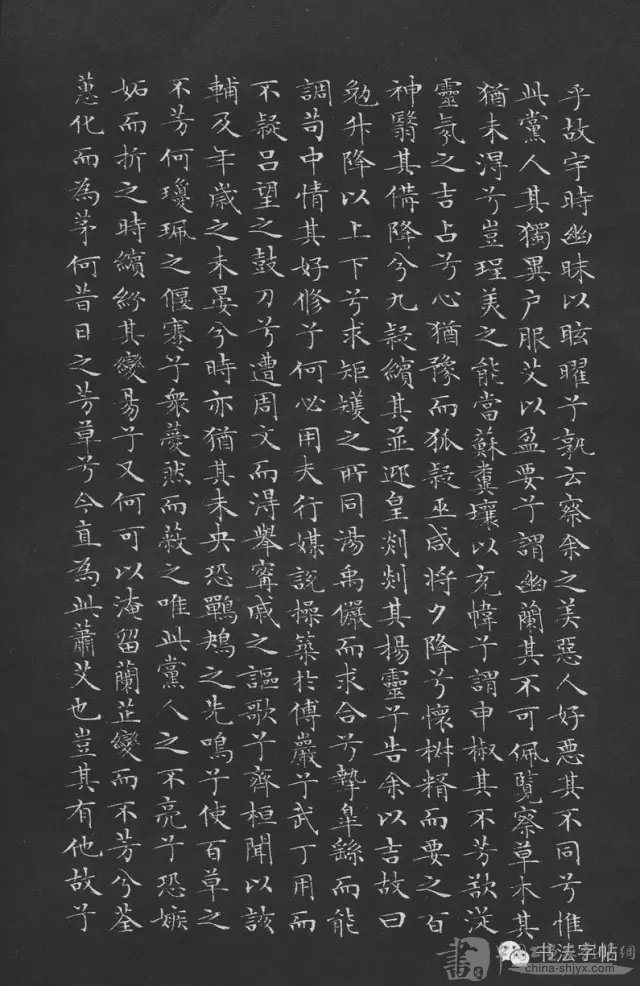 乎故宇時幽昧以眩曜兮孰云察余之美惡人好惡其不同兮惟
此黨人其獨異户服艾以盈要兮謂幽蘭其不可佩覽察草木其
猶未淂兮豈珵美之能當蘇糞壤以充幃兮謂申椒其不芳欲從
靈氛之吉占兮心猶豫而狐疑巫咸將夕降兮懷椒糈而要之百
神翳其備降兮九疑繽其並迎皇剡剡其揚靈兮告余以吉故曰
勉升降以上下兮求矩矱之所同湯禹儼而求合兮摯皋繇而能
調苟中情其好修兮何必用夫行媒說操築於傅巖兮武丁用而
不疑呂望之鼓刀兮遭周文而淂舉甯戚之謳歌兮齊桓聞以該
輔及年歲之未晏兮時亦猶其未央恐鷤鴂之先鳴兮使百草之
不芳何瓊珮之偃蹇兮衆薆然而蔽之唯此黨人之不亮兮恐嫉
妬而折之時繽紛其變易兮又何可以淹留蘭芷變而不芳兮荃
蕙化而為茅何昔日之芳草兮今直為此蕭艾也豈其有他故兮
書法字帖
china-shjyx.com